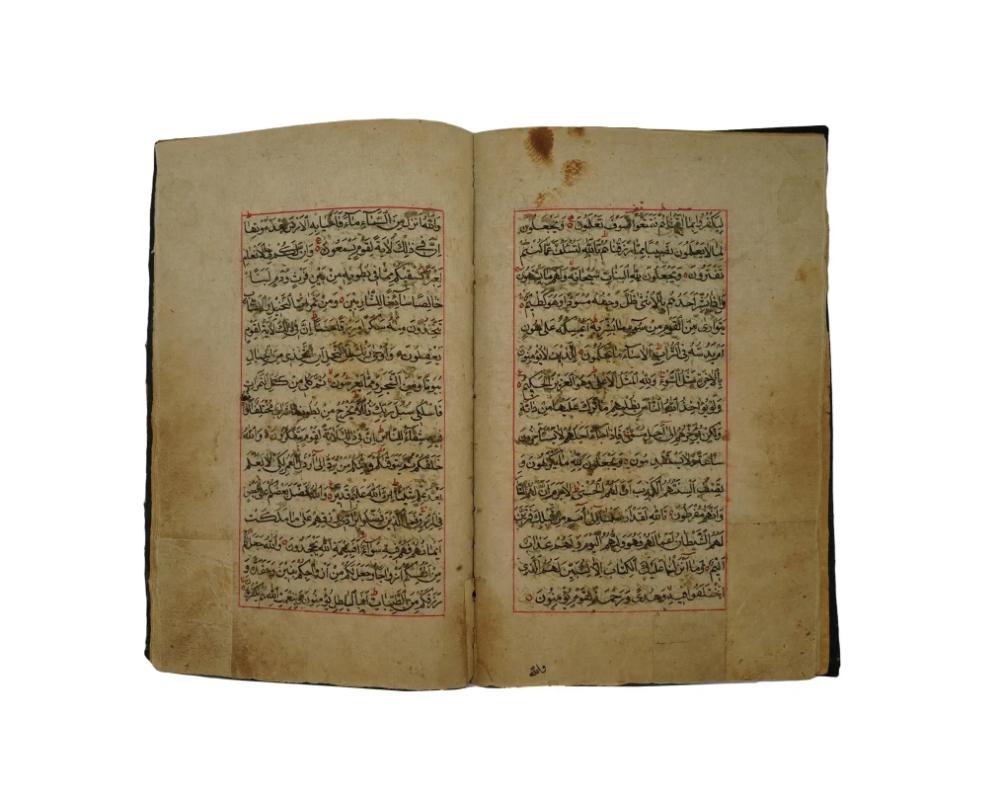 لِيَكْفُرُوا بِمَا آتَيْنَاهُمْ فَتَمَتَّعُوا فَسَوْفَ تَعْلَمُونَ وَيَجْعَلُونَ
لِمَا لَا يَعْلَمُونَ نَصِيبًا مِمَّا رَزَقْنَاهُمْ تَاللَّهِ لَتُسْئَلُنَّ عَمَّا كُنْتُمْ
تَفْتَرُونَ وَيَجْعَلُونَ لِلَّهِ الْبَنَاتِ سُبْحَانَهُ وَلَهُمْ مَا يَشْتَهُونَ
وَإِذَا بُشِّرَ أَحَدُهُمْ بِالْأُنْثَى ظَلَّ وَجْهُهُ مُسْوَدًّا وَهُوَ كَظِيمٌ
يَتَوَارَى مِنَ الْقَوْمِ مِنْ سُوءِ مَا بُشِّرَ بِهِ أَيُمْسِكُهُ عَلَى هُونٍ
أَمْ يَدُسُّهُ فِي التُّرَابِ أَلَا سَاءَ مَا يَحْكُمُونَ لِلَّذِينَ لَا يُؤْمِنُونَ
بِالْآخِرَةِ مَثَلُ السَّوْءِ وَلِلَّهِ الْمَثَلُ الْأَعْلَى وَهُوَ الْعَزِيزُ الْحَكِيمُ
وَلَوْ يُؤَاخِذُ اللَّهُ النَّاسَ بِظُلْمِهِمْ مَا تَرَكَ عَلَيْهَا مِنْ دَابَّةٍ
وَلَكِنْ يُؤَخِّرُهُمْ إِلَى أَجَلٍ مُسَمًّى فَإِذَا جَاءَ أَجَلُهُمْ لَا يَسْتَأْخِرُونَ
سَاعَةً وَلَا يَسْتَقْدِمُونَ وَيَجْعَلُونَ لِلَّهِ مَا يَكْرَهُونَ وَ
تَصِفُ أَلْسِنَتُهُمُ الْكَذِبَ أَنَّ لَهُمُ الْحُسْنَى لَا جَرَمَ أَنَّ لَهُمُ النَّارَ
وَأَنَّهُمْ مُفْرَطُونَ تَاللَّهِ لَقَدْ أَرْسَلْنَا إِلَى أُمَمٍ مِنْ قَبْلِكَ فَزَيَّنَ
لَهُمُ الشَّيْطَانُ أَعْمَالَهُمْ فَهُوَ وَلِيُّهُمُ الْيَوْمَ وَلَهُمْ عَذَابٌ
أَلِيمٌ وَمَا أَنْزَلْنَا عَلَيْكَ الْكِتَابَ إِلَّا لِتُبَيِّنَ لَهُمُ الَّذِي
اخْتَلَفُوا فِيهِ وَهُدًى وَرَحْمَةً لِقَوْمٍ يُؤْمِنُونَ
والله
وَاللَّهُ أَنْزَلَ مِنَ السَّمَاءِ مَاءً فَأَحْيَا بِهِ الْأَرْضَ بَعْدَ مَوْتِهَا
إِنَّ فِي ذَلِكَ لَآيَةً لِقَوْمٍ يَسْمَعُونَ وَإِنَّ لَكُمْ فِي الْأَنْعَامِ
لَعِبْرَةً نُسْقِيكُمْ مِمَّا فِي بُطُونِهِ مِنْ بَيْنِ فَرْثٍ وَدَمٍ لَبَنًا
خَالِصًا سَائِغًا لِلشَّارِبِينَ وَمِنْ ثَمَرَاتِ النَّخِيلِ وَالْأَعْنَابِ
تَتَّخِذُونَ مِنْهُ سَكَرًا وَرِزْقًا حَسَنًا إِنَّ فِي ذَلِكَ لَآيَةً لِقَوْمٍ
يَعْقِلُونَ وَأَوْحَى رَبُّكَ إِلَى النَّحْلِ أَنِ اتَّخِذِي مِنَ الْجِبَالِ
بُيُوتًا وَمِنَ الشَّجَرِ وَمِمَّا يَعْرِشُونَ ثُمَّ كُلِي مِنْ كُلِّ الثَّمَرَاتِ
فَاسْلُكِي سُبُلَ رَبِّكِ ذُلُلًا يَخْرُجُ مِنْ بُطُونِهَا شَرَابٌ مُخْتَلِفٌ أَلْوَانُهُ
فِيهِ شِفَاءٌ لِلنَّاسِ إِنَّ فِي ذَلِكَ لَآيَةً لِقَوْمٍ يَتَفَكَّرُونَ وَاللَّهُ
خَلَقَكُمْ ثُمَّ يَتَوَفَّاكُمْ وَمِنْكُمْ مَنْ يُرَدُّ إِلَى أَرْذَلِ الْعُمُرِ لِكَيْ لَا يَعْلَمَ
بَعْدَ عِلْمٍ شَيْئًا إِنَّ اللَّهَ عَلِيمٌ قَدِيرٌ وَاللَّهُ فَضَّلَ بَعْضَكُمْ عَلَى بَعْضٍ
فِي الرِّزْقِ فَمَا الَّذِينَ فُضِّلُوا بِرَادِّي رِزْقِهِمْ عَلَى مَا مَلَكَتْ
أَيْمَانُهُمْ فَهُمْ فِيهِ سَوَاءٌ أَفَبِنِعْمَةِ اللَّهِ يَجْحَدُونَ وَاللَّهُ جَعَلَ لَكُمْ
مِنْ أَنْفُسِكُمْ أَزْوَاجًا وَجَعَلَ لَكُمْ مِنْ أَزْوَاجِكُمْ بَنِينَ وَحَفَدَةً وَ
رَزَقَكُمْ مِنَ الطَّيِّبَاتِ أَفَبِالْبَاطِلِ يُؤْمِنُونَ وَبِنِعْمَتِ اللَّهِ هُمْ يَكْفُرُونَ